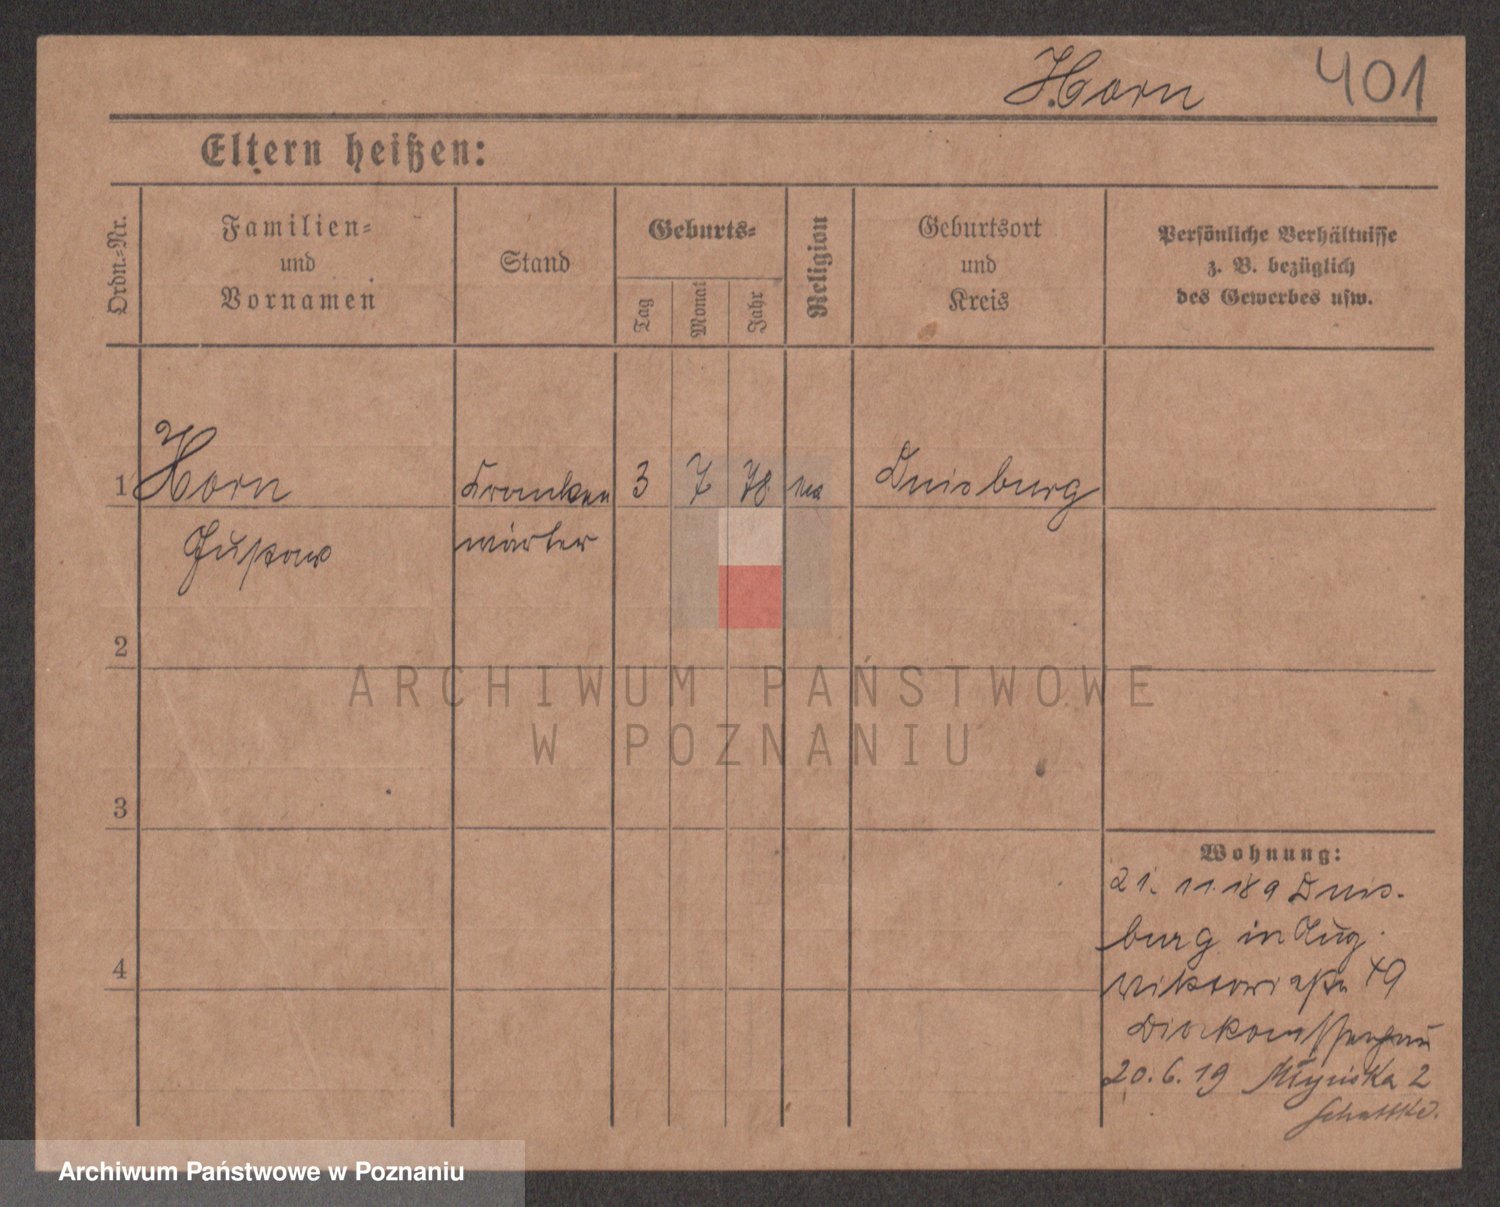 Horn 401
Eltern heißen:
Ordn.-Nr.
Familien-
und
Vornamen
Stand
Geburts-
Tag
Monat
Jahr
Religion
Geburtsort
und
Kreis
Persönliche Verhältnisse
z. B. bezüglich
des Gewerbes usw.
1 Horn Kranken 3 7 78 Duisburg
Gustav wärter
2
3
4
Wohnung:
21. 11. 18 a Duis-
burg in Zug.
Viktoriastr 49
20.6.19 Młyńska 2
Schattke.
ARCHIWUM PAŃSTWOWE
W POZNANIU
Archiwum Państwowe w Poznaniu